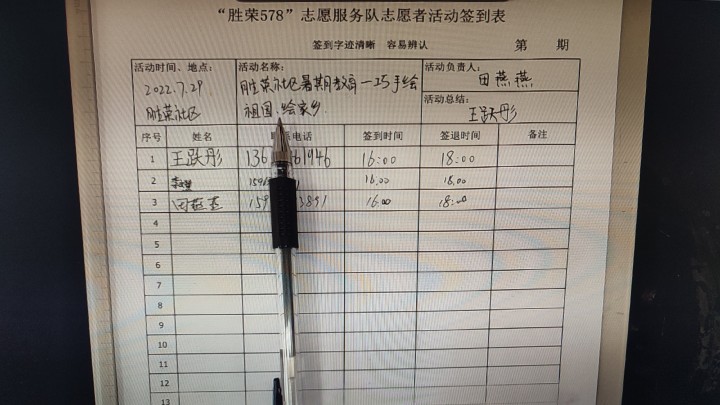 “胜荣578”志愿服务队志愿者活动签到表
签到字迹清晰 容易辨认 第 期
活动时间、地点: 活动名称: 活动负责人:
2022.7.29 胜荣社区暑期教育—巧手绘 田燕燕
胜荣社区 祖国、绘家乡. 活动总结: 王跃彤
序号 姓名 电话 签到时间 签退时间 备注
1 王跃彤 136 61946 16:00 18:00
2 16.00 18.00
3 田燕燕 159 3891 16.00 18:00
4
5
6
7
8
9
10
11
12
13